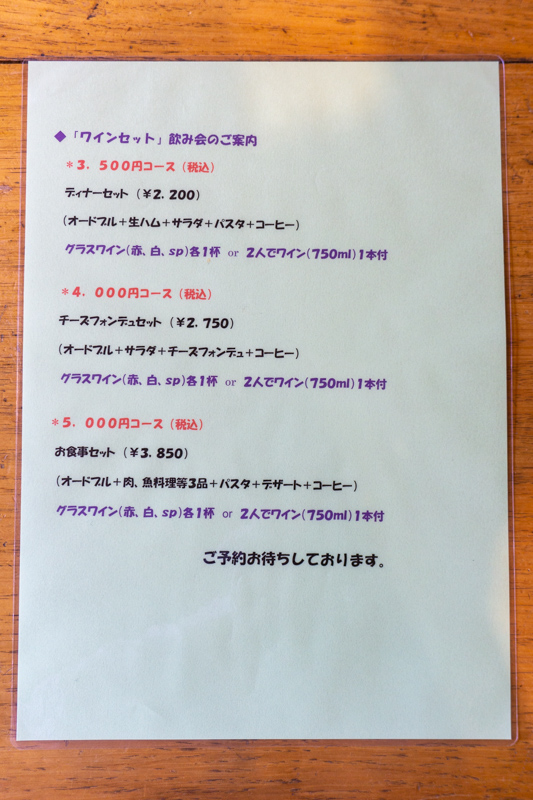 ◆「ワインセット」飲み会のご案内
＊3．500円コース（税込）
ディナーセット（￥2．200）
（オードブル＋生ハム＋サラダ＋パスタ＋コーヒー）
グラスワイン（赤、白、sp）各1杯 or 2人でワイン（750ml）1本付
＊4．000円コース（税込）
チーズフォンデュセット（￥2．750）
（オードブル＋サラダ＋チーズフォンデュ＋コーヒー）
グラスワイン（赤、白、sp）各1杯 or 2人でワイン（750ml）1本付
＊5．000円コース（税込）
お食事セット（￥3．850）
（オードブル＋肉、魚料理等3品＋パスタ＋デザート＋コーヒー）
グラスワイン（赤、白、sp）各1杯 or 2人でワイン（750ml）1本付
ご予約お待ちしております。